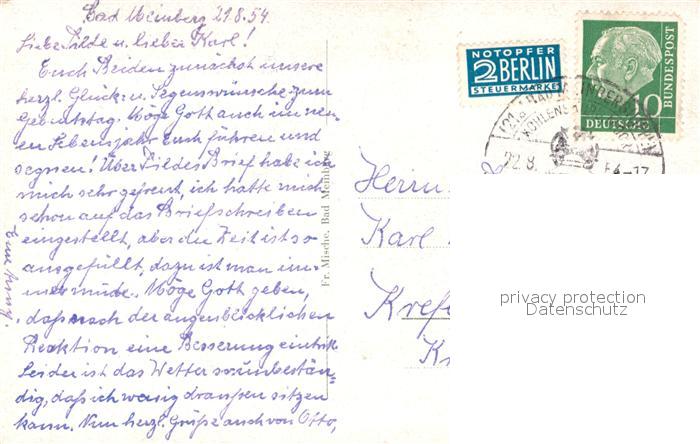 Bad Meinberg 21.8.54.
Liebe Tilde u. lieber Karl!
Euch Beiden zunächst unsere
herzl. Glück= u. Segenswünsche zum
Geburtstag. Möge Gott auch im neu-
en Lebensjahr Euch führen und
segnen! Über Tildes Brief habe ich
mich sehr gefreut, ich hatte mich
schon auf das Briefschreiben
eingestellt, aber die Zeit ist so
ausgefüllt, dazu ist man im-
mer müde. Möge Gott geben,
daß nach der augenblicklichen
Reaktion eine Besserung eintritt.
Leider ist das Wetter so unbestän-
dig, daß ich wenig draußen sitzen
kann. Nun herzl. Grüße auch von Otto,
Eure
Fr. Mische, Bad Meinberg
NOTOPFER
2 BERLIN
STEUERMARKE
10
DEUTSCHE
BUNDESPOST
22.8. 54-17
Herrn
Karl
Krefe
K
privacy protection
Datenschutz